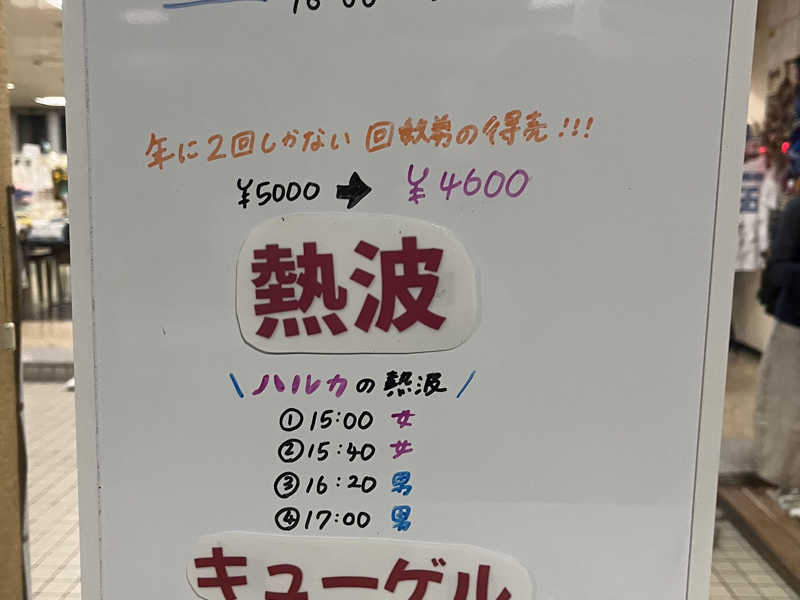 年に2回しかない 回数券の特売!!!
¥5000 ➡ ¥4600
熱波
\ ハルカの熱波 /
①15:00 女
②15:40 女
③16:20 男
④17:00 男
キューゲル